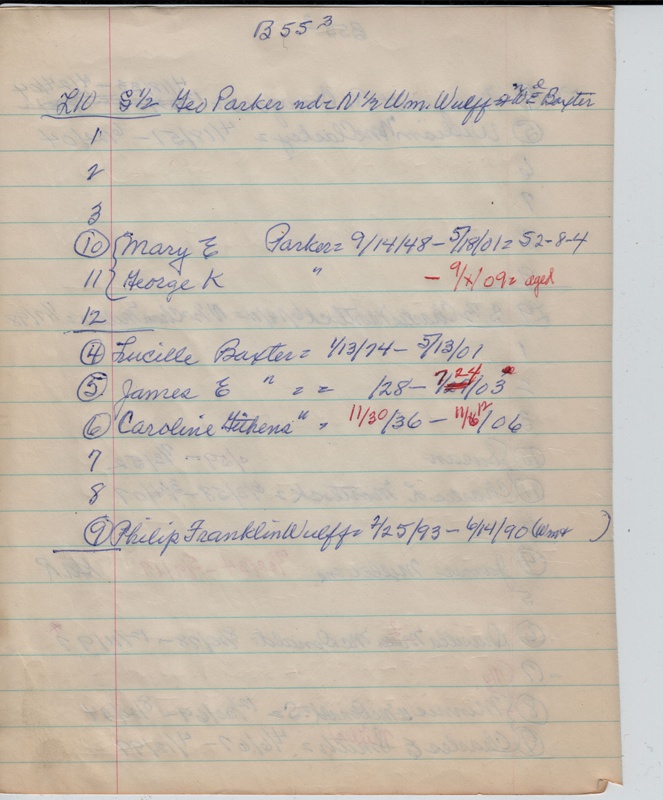 B 55 3
L10 S 1/2 Geo Parker nd = N 1/2 Wm. Wulff & Wm Baxter
1
2
3
10 Mary E Parker = 9/14/48 - 5/18/01 = 52-8-4
11 George K " - 9/x/09 = aged
12
4 Lucille Baxter = 1/13/74 - 5/13/01
5 James E " = = /28 - 7/24/03
6 Caroline Githens " = 11/30/36 - 11/12/06
7
8
9 Philip Franklin Wulff = 7/25/93 - 6/14/90 (Wm + )